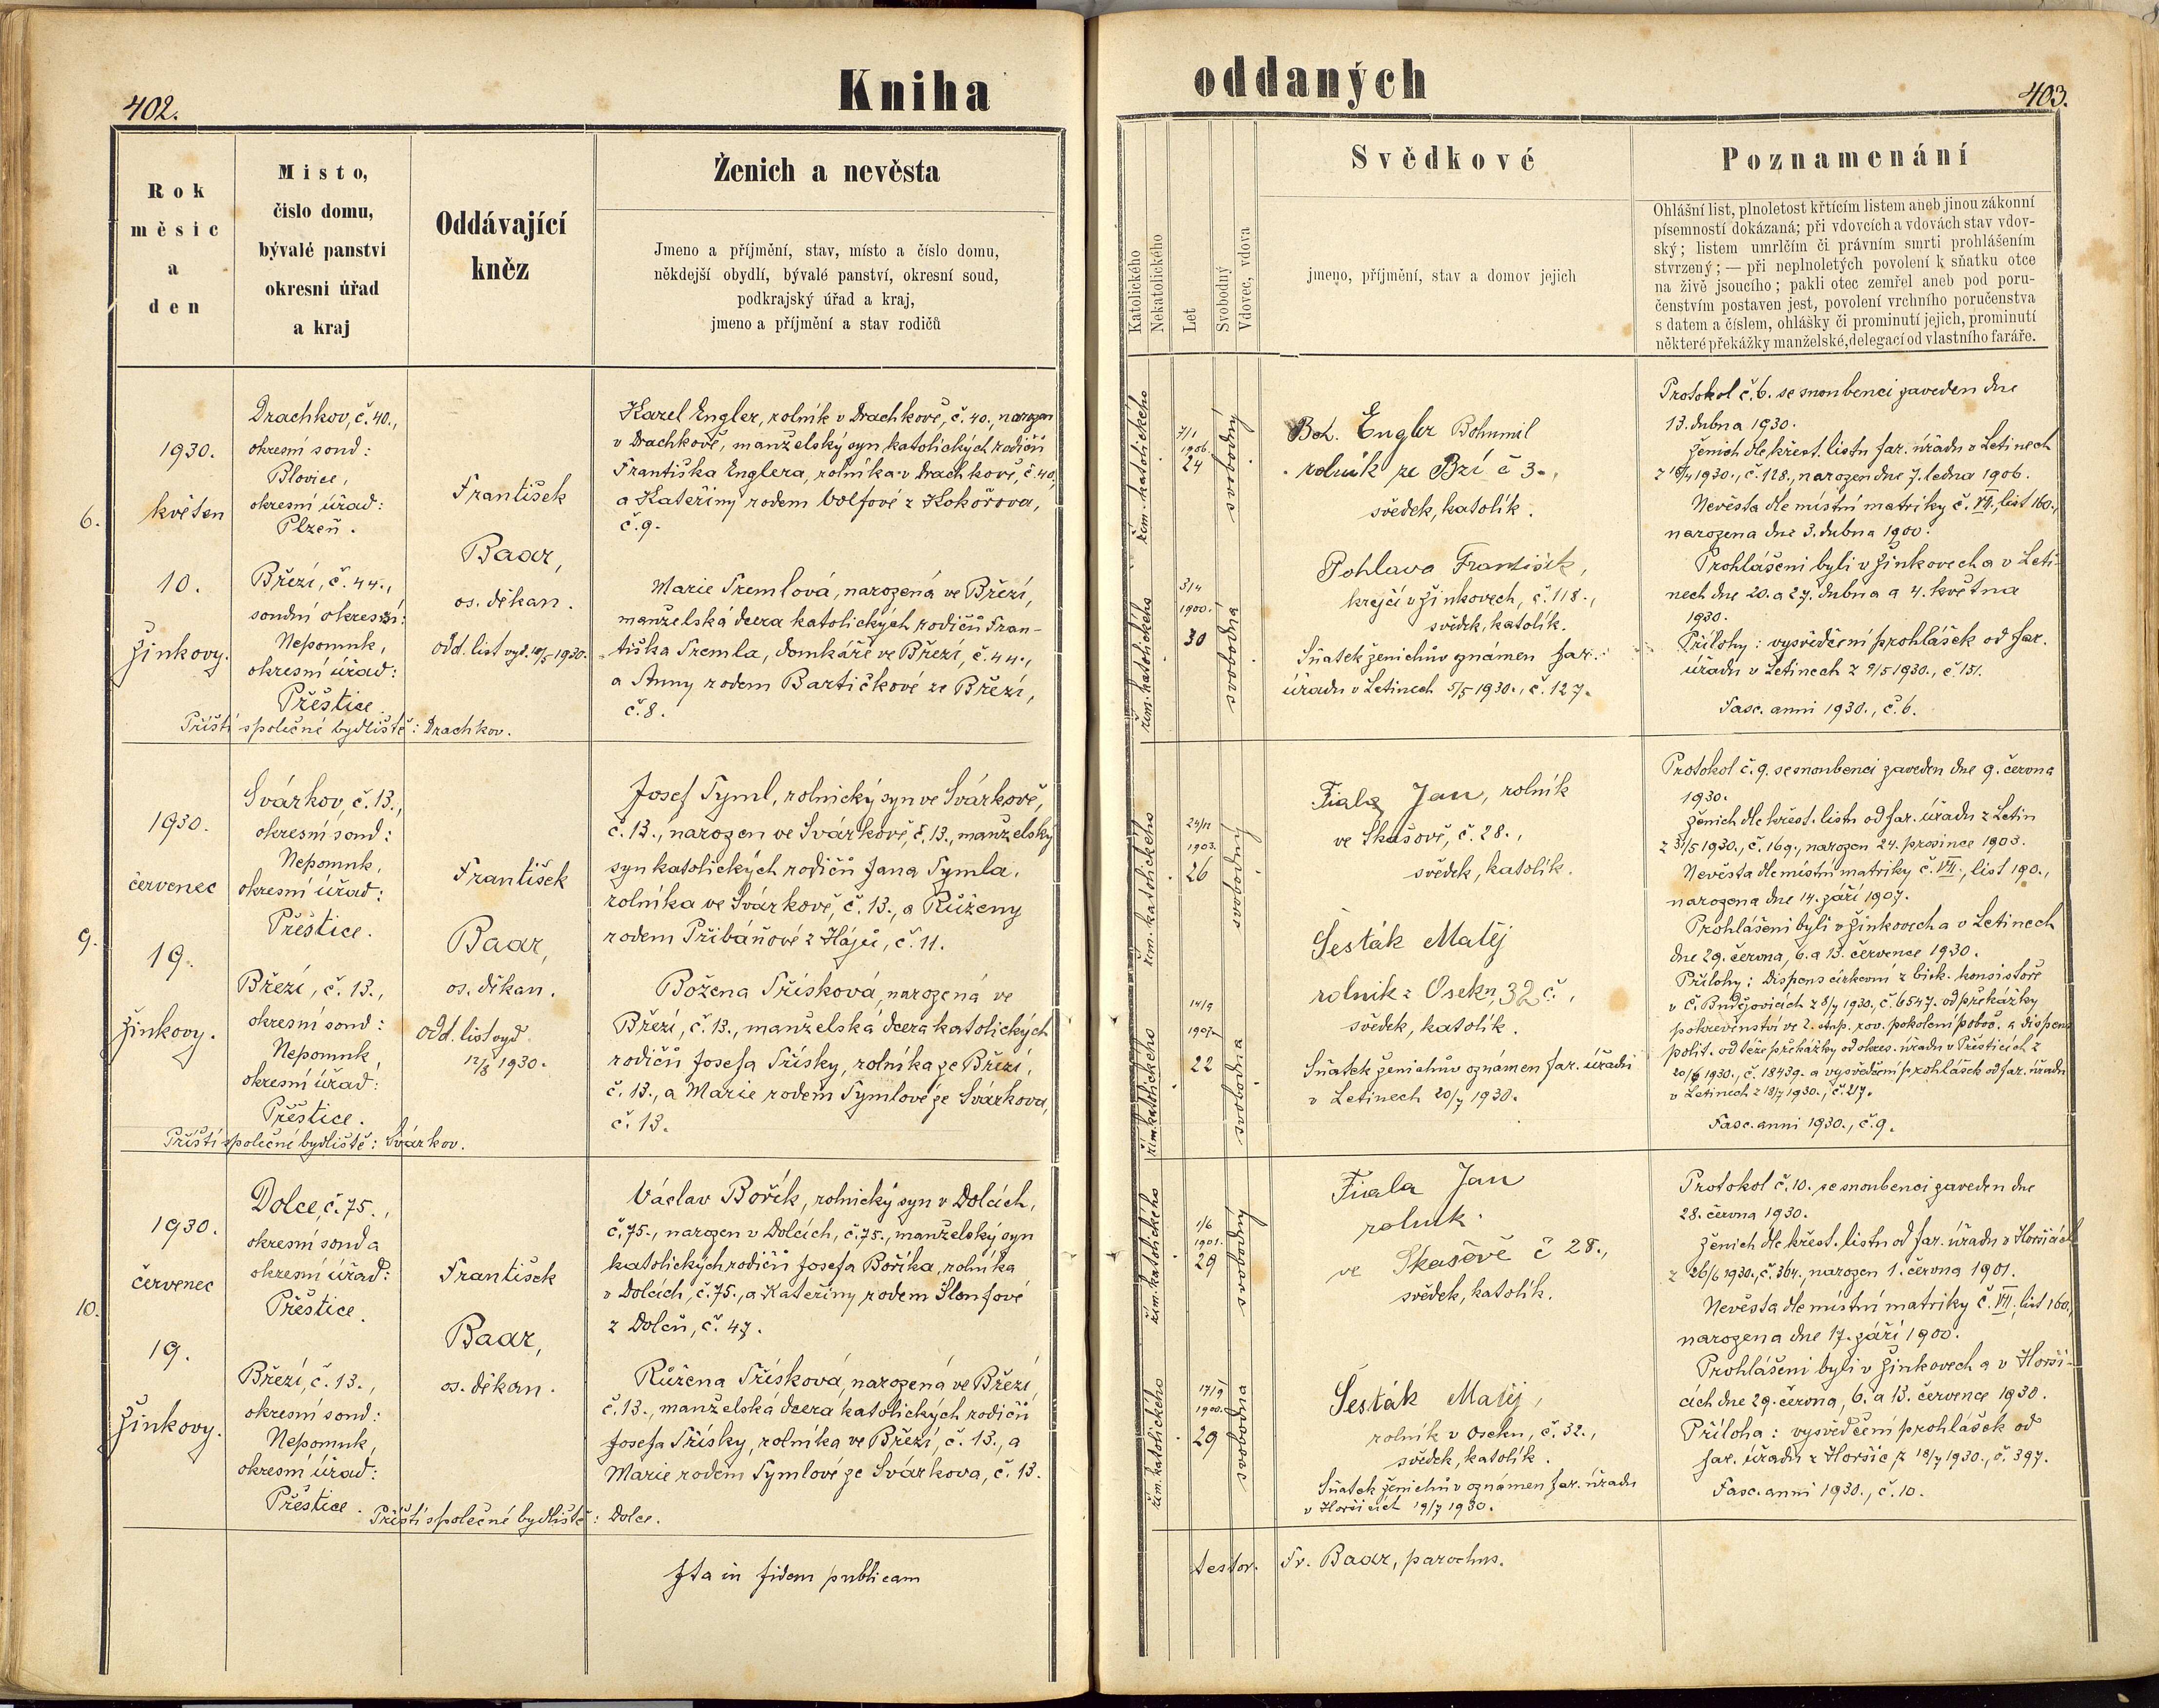 402.
Kniha
oddaných
403.
Rok
měsíc
a
den
Místo,
číslo domu,
bývalé panství
okresní úřad
a kraj
Oddávající
kněz
Ženich a nevěsta
Jmeno a příjmění, stav, místo a číslo domu,
někdejší obydlí, bývalé panství, okresní soud,
podkrajský úřad a kraj,
jmeno a příjmění a stav rodičů
Katolického
Nekatolického
Let
Svobodný
Vdovec, vdova
Svědkové
jmeno, příjmění, stav a domov jejich
Poznamenání
Ohlášní list, plnoletost křtícím listem aneb jinou zákonní
písemností dokázaná; při vdovcích a vdovách stav vdov-
ský; listem umrlčím či právním smrti prohlášením
stvrzený; — při neplnoletých povolení k sňatku otce
na živě jsoucího; pakli otec zemřel aneb pod poru-
čenstvím postaven jest, povolení vrchního poručenstva
s datem a číslem, ohlášky či prominutí jejich, prominutí
některé překážky manželské, delegací od vlastního faráře.
6.
1930.
květen
10.
Žinkovy.
Drachkov, č. 40.,
okresní soud:
Blovice,
okresní úřad:
Plzeň.
Březí, č. 44.,
soudní okresní:
Nepomuk,
okresní úřad:
Přeštice.
Příští společné bydliště: Drachkov.
František
Baar,
os. děkan.
odd. list vyd. 10/5 1930.
Karel Engler, rolník v Drachkově, č. 40., narozen
v Drachkově, manželský syn katolických rodičů
Františka Englera, rolníka v Drachkově, č. 40,
a Kateřiny rodem Volfové z Kokořova,
č. 9.
Marie Tremlová, narozená ve Březí,
manželská dcera katolických rodičů Fran-
tiška Tremla, domkáře ve Březí, č. 44.,
a Anny rodem Bartičkové ze Březí,
č. 8.
řím. katolického
7/1
1906.
24
svobodný
řím. katolického
3/4
1900.
30
svobodna
Boh. Engler Bohumil
rolník ze Bzí č 3.,
svědek, katolík.
Pohlava František,
krejčí v Žinkovech, č. 118.,
svědek, katolík.
Sňatek ženichův oznámen far.
úřadu v Letinech 5/5 1930., č. 127.
Protokol č. 6. se snoubenci zaveden dne
13. dubna 1930.
Ženich dle křest. listu far. úřadu v Letinech
narozen dne 7. ledna 1906.
Nevěsta dle místní matriky č. VII., list 160.,
narozena dne 3. dubna 1900.
Prohlášeni byli v Žinkovech a v Leti-
nech dne 20. a 27. dubna a 4. května
1930.
Přílohy: vysvědčení prohlášek od far.
úřadu v Letinech z 9/5 1930., č. 151.
Fasc. anni 1930., č. 6.
9.
1930.
červenec
19.
Žinkovy.
Svárkov, č. 13.,
okresní soud:
Nepomuk,
okresní úřad:
Přeštice.
Březí, č. 13.,
okresní soud:
Nepomuk,
okresní úřad:
Přeštice.
Příští společné bydliště: Svárkov.
František
Baar,
os. děkan.
odd. list vyd.
12/8 1930.
Josef Tyml, rolnický syn ve Svárkově,
č. 13., narozen ve Svárkově, č. 13., manželský
syn katolických rodičů Jana Tymla,
rolníka ve Svárkově, č. 13., a Růženy
rodem Přibáňové z Hájů, č. 11.
Božena Třísková, narozená ve
Březí, č. 13., manželská dcera katolických
rodičů Josefa Třísky, rolníka ze Březí,
č. 13., a Marie rodem Tymlové ze Svárkova,
č. 13.
řím. katolického
24/12
1903.
26
svobodný
řím. katolického
14/9
1907.
22
svobodna
Fiala Jan, rolník
ve Skašově, č. 28.,
svědek, katolík.
Šesták Matěj
rolník z Oseku, 32 č.,
svědek, katolík.
Sňatek ženichův oznámen far. úřadu
v Letinech 20/7 1930.
Protokol č. 9. se snoubenci zaveden dne 9. června
1930.
Ženich dle křest. listu od far. úřadu z Letin
z 31/5 1930., č. 169., narozen 24. prosince 1903.
Nevěsta dle místní matriky č. VII., list 190.,
narozena dne 14. září 1907.
Prohlášeni byli v Žinkovech a v Letinech
dne 29. června, 6. a 13. července 1930.
Přílohy: Dispens církevní z bisk. konsistoře
v Č. Budějovicích z 8/7 1930., č. 6547. od překážky
pokrevenství ve 2. stup. rov. pokolení poboč. a dispens
polit. od téže překážky od okres. úřadu v Přešticích z
20/6 1930., č. 18439. a vysvědčení prohlášek od far. úřadu
v Letinech z 18/7 1930., č. 217.
Fasc. anni 1930., č. 9.
10.
1930.
červenec
19.
Žinkovy.
Dolce, č. 75.,
okresní soud a
okresní úřad:
Přeštice.
Březí, č. 13.,
okresní soud:
Nepomuk,
okresní úřad:
Přeštice.
Příští společné bydliště: Dolce.
František
Baar,
os. děkan.
Václav Bořík, rolnický syn v Dolcích,
č. 75., narozen v Dolcích, č. 75., manželský syn
katolických rodičů Josefa Boříka, rolníka
v Dolcích, č. 75., a Kateřiny rodem Šloufové
z Dolců, č. 47.
Růžena Třísková, narozená ve Březí,
č. 13., manželská dcera katolických rodičů
Josefa Třísky, rolníka ve Březí, č. 13., a
Marie rodem Tymlové ze Svárkova, č. 13.
řím. katolického
1/6
1901.
29
svobodný
řím. katolického
17/9
1900.
29
svobodna
Fiala Jan
rolník.
ve Skašově č 28.,
svědek, katolík.
Šesták Matěj,
rolník v Oseku, č. 32.,
svědek, katolík.
Sňatek ženichův oznámen far. úřadu
v Horšicích 19/7 1930.
Protokol č. 10. se snoubenci zaveden dne
28. června 1930.
Ženich dle křest. listu od far. úřadu v Horšicích
z 26/6 1930., č. 364., narozen 1. června 1901.
Nevěsta dle místní matriky č. VII., list 160.,
narozena dne 17. září 1900.
Prohlášeni byli v Žinkovech a v Horši-
cích dne 29. června, 6. a 13. července 1930.
Příloha: vysvědčení prohlášek od
far. úřadu z Horšic z 18/7 1930., č. 397.
Fasc. anni 1930., č. 10.
Ita in fidem publicam
testor. Fr. Baar, parochus.